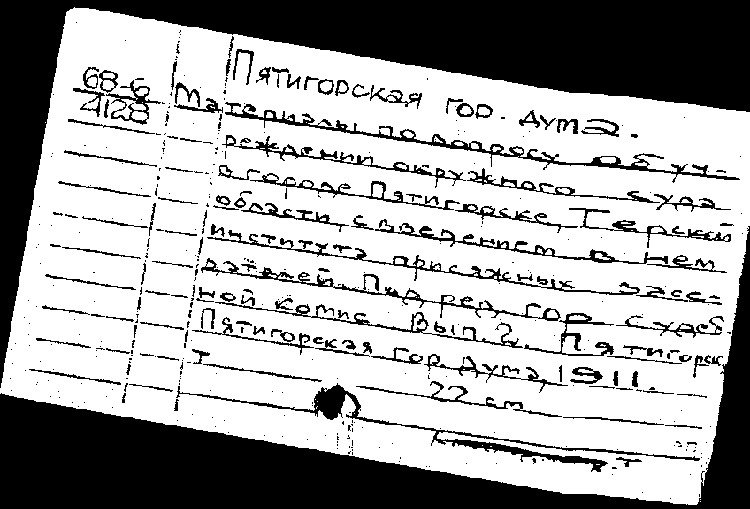 Пятигорская гор. дума.
68-6
4128
Материалы по вопросу об уч-
реждении окружного суда
в городе Пятигорске, Терской
области, с введением в нем
института присяжных засе-
дателей. Под ред. гор. судеб
ной комис. Вып. 2. Пятигорск,
Пятигорская гор. дума, 1911.
22 см
т